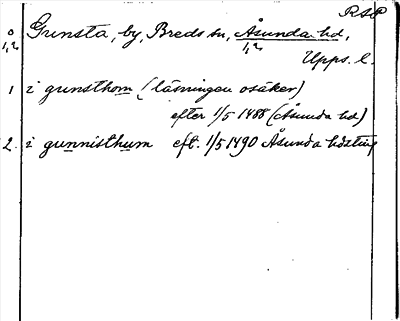 RSP
0 Grinsta, by, Breds sn, Åsunda hd,
1,2 1,2
Upps. l.
1 i gunsthom (läsningen osäker)
efter 1/5 1488 (Åsunda hd)
2. i gunnisthum eft. 1/5 1490 Åsunda hdsting